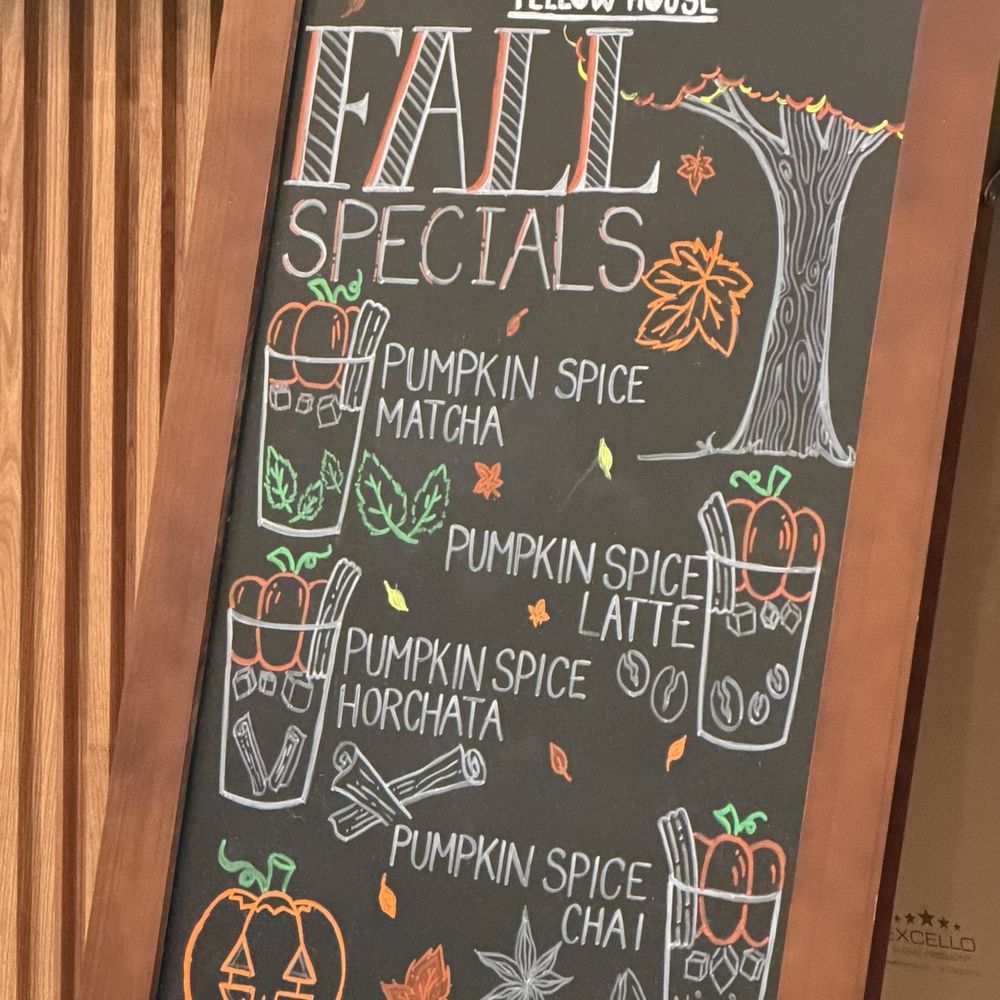 YELLOW HOUSE
FALL
SPECIALS
PUMPKIN SPICE
MATCHA
PUMPKIN SPICE
LATTE
PUMPKIN SPICE
HORCHATA
PUMPKIN SPICE
CHAI
EXCELLO